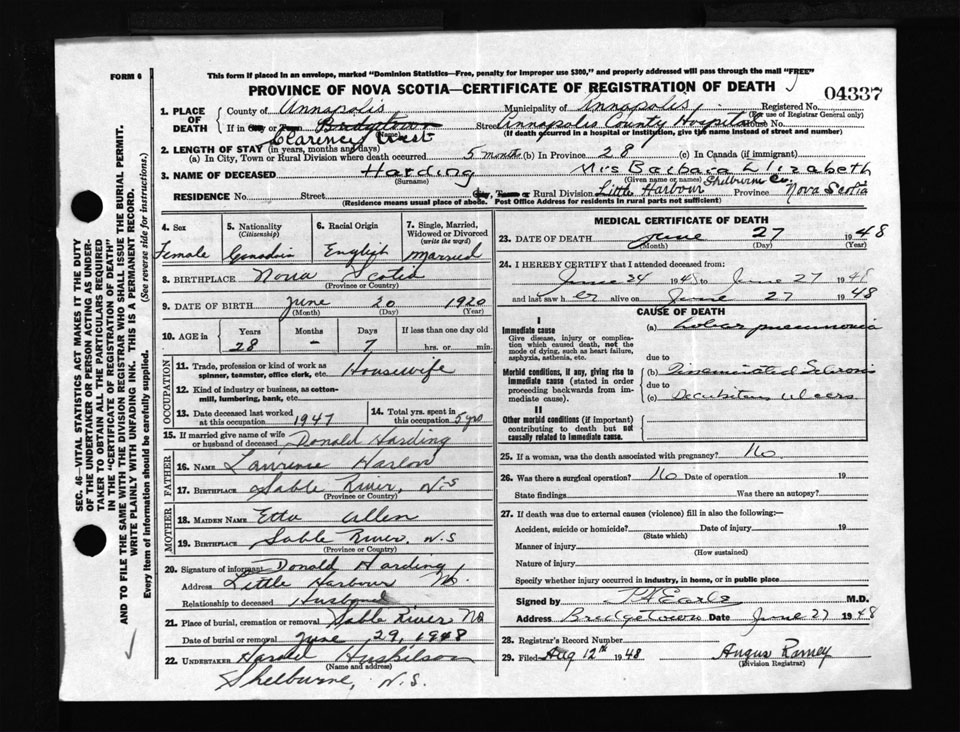 FORM 6
This form if placed in an envelope, marked "Dominion Statistics—Free, penalty for improper use $300," and properly addressed will pass through the mail "FREE"
PROVINCE OF NOVA SCOTIA—CERTIFICATE OF REGISTRATION OF DEATH
04337
1. PLACE OF DEATH
County of Annapolis Municipality of Annapolis Registered No.
(For use of Registrar General only)
If in City or Town Bridgetown Street Annapolis County Hospital House No.
Clarence West (If death occurred in a hospital or institution, give the name instead of street and number)
2. LENGTH OF STAY (in years, months and days)
(a) In City, Town or Rural Division where death occurred 5 months (b) In Province 28 (c) In Canada (if immigrant)
3. NAME OF DECEASED Harding Mrs Barbara Elizabeth
(Surname) (Given name or names)
RESIDENCE No. Street City, Town or Rural Division Little Harbour Shelburne Co. Province Nova Scotia
(Residence means usual place of abode. Post Office Address for residents in rural parts not sufficient)
4. Sex
Female
5. Nationality
(Citizenship)
Canadian
6. Racial Origin
English
7. Single, Married, Widowed or Divorced
(write the word)
Married
8. BIRTHPLACE Nova Scotia
(Province or Country)
9. DATE OF BIRTH June 20 1920
(Month) (Day) (Year)
10. AGE in Years Months Days If less than one day old
28 - 7 hrs. or min.
OCCUPATION
11. Trade, profession or kind of work as spinner, teamster, office clerk, etc. Housewife
12. Kind of industry or business, as cotton-mill, lumbering, bank, etc.
13. Date deceased last worked at this occupation 1947
14. Total yrs. spent in this occupation 5 yrs
15. If married give name of wife or husband of deceased Donald Harding
FATHER
16. NAME Lawrence Harlow
17. BIRTHPLACE Sable River, N.S
(Province or Country)
MOTHER
18. MAIDEN NAME Etta Allen
19. BIRTHPLACE Sable River, N.S
(Province or Country)
20. Signature of informant Donald Harding
Address Little Harbour NS.
Relationship to deceased Husband
21. Place of burial, cremation or removal Sable River NS
Date of burial or removal June 29, 1948
22. UNDERTAKER Harold Huskilson
(Name and address)
Shelburne, N.S.
MEDICAL CERTIFICATE OF DEATH
23. DATE OF DEATH June 27 1948
(Month) (Day) (Year)
24. I HEREBY CERTIFY that I attended deceased from:
June 24 1948 to June 27 1948
and last saw her alive on June 27 1948
CAUSE OF DEATH
I
Immediate cause
Give disease, injury or complication which caused death, not the mode of dying, such as heart failure, asphyxia, asthenia, etc.
(a) Lobar pneumonia
due to
Morbid conditions, if any, giving rise to immediate cause (stated in order proceeding backwards from immediate cause).
(b) Disseminated Sclerosis
due to
(c) Decubitus ulcers
II
Other morbid conditions (if important) contributing to death but not causally related to immediate cause.
25. If a woman, was the death associated with pregnancy? No.
26. Was there a surgical operation? No Date of operation 19
State findings Was there an autopsy?
27. If death was due to external causes (violence) fill in also the following:—
Accident, suicide or homicide? Date of injury 19
(State which)
Manner of injury
(How sustained)
Nature of injury
Specify whether injury occurred in industry, in home, or in public place
Signed by M.D.
Address Bridgetown Date June 27 1948
28. Registrar's Record Number
29. Filed Aug 12th 1948 Angus Ramey
(Division Registrar)
SEC. 46—VITAL STATISTICS ACT MAKES IT THE DUTY
OF THE UNDERTAKER OR PERSON ACTING AS UNDER-
TAKER TO OBTAIN ALL THE PARTICULARS REQUIRED
IN THE "CERTIFICATE OF REGISTRATION OF DEATH"
AND TO FILE THE SAME WITH THE DIVISION REGISTRAR WHO SHALL ISSUE THE BURIAL PERMIT.
WRITE PLAINLY WITH UNFADING INK. THIS IS A PERMANENT RECORD.
Every item of information should be carefully supplied. (See reverse side for instructions.)